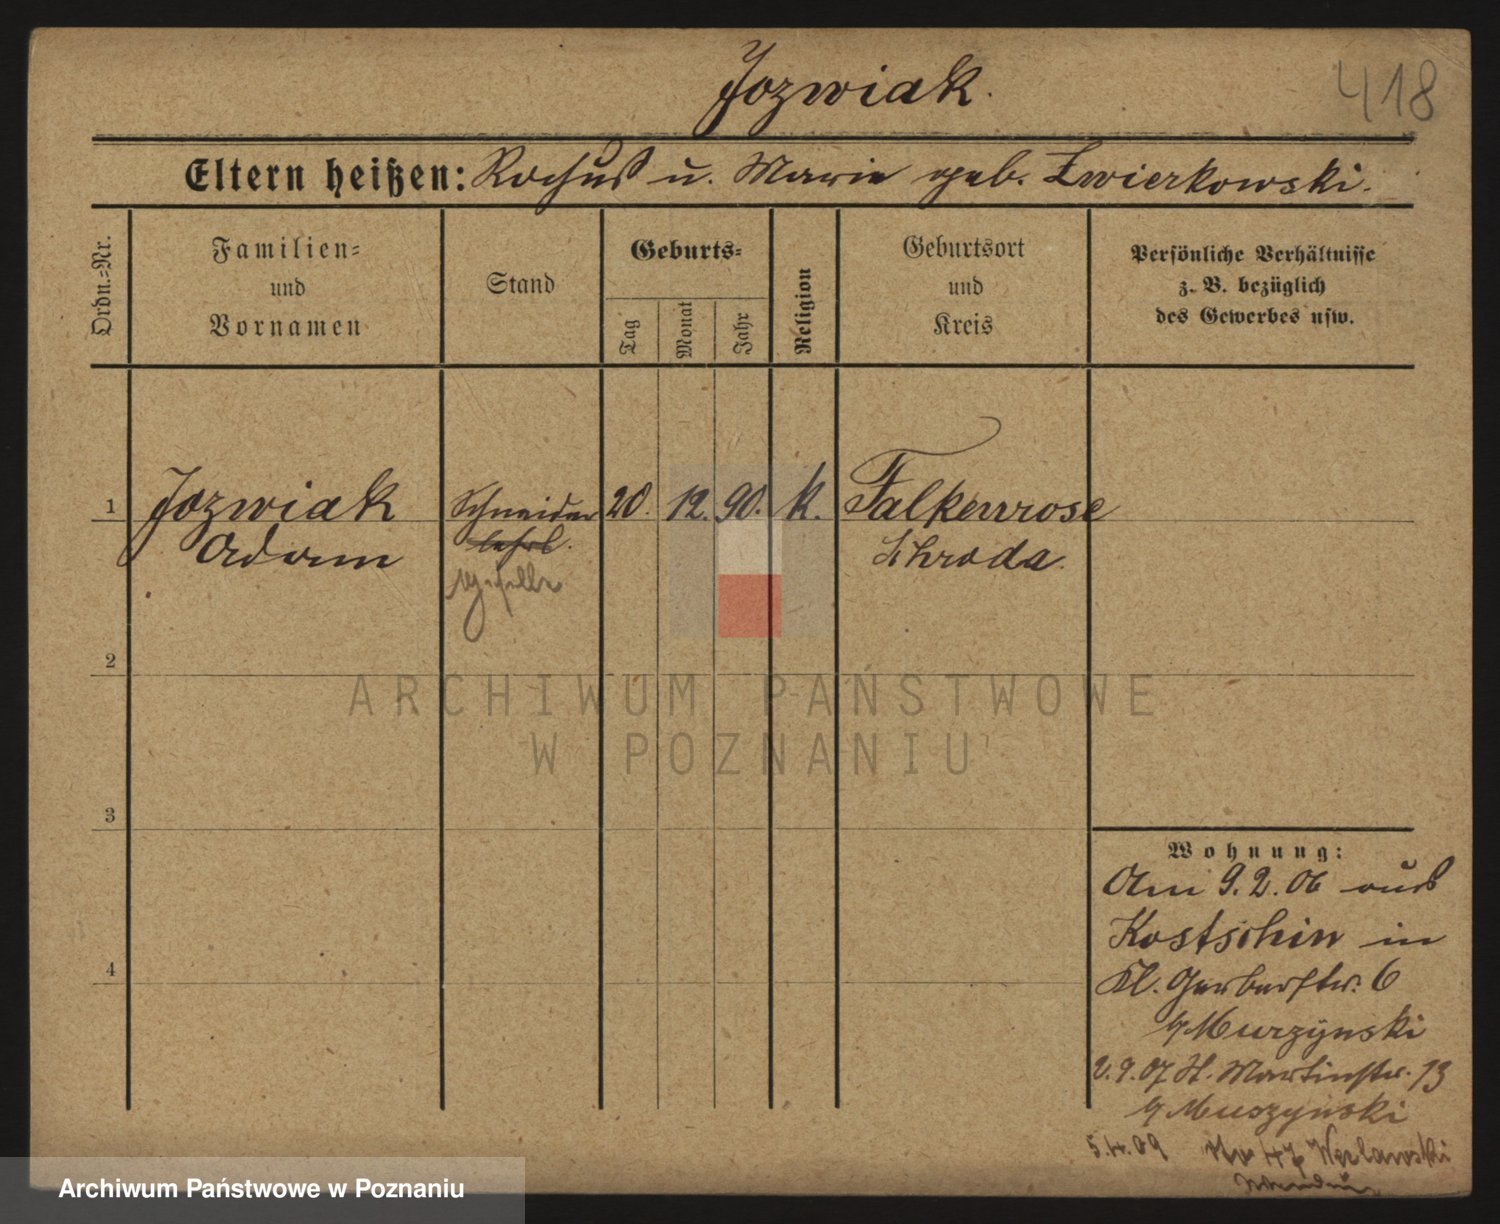 Jozwiak.
418
Eltern heißen: Rochus u. Marie geb. Zwierkowski.
Ordn.-Nr.
Familien-
und
Vornamen
Stand
Geburts-
Tag
Monat
Jahr
Religion
Geburtsort
und
Kreis
Persönliche Verhältnisse
z. B. bezüglich
des Gewerbes usw.
1 Jozwiak Schneider 20. 12. 90. k. Falkenrose
Adam lehrl. Schroda.
Geselle
2
ARCHIWUM PAŃSTWOWE
W POZNANIU
3
Wohnung:
Am 9.2.06 aus
Kostschin in
4
Kl. Gerberstr. 6
b/ Murzynski
2.9.07 St. Martinstr. 13
b/ Muszynski
5.4.09
Archiwum Państwowe w Poznaniu